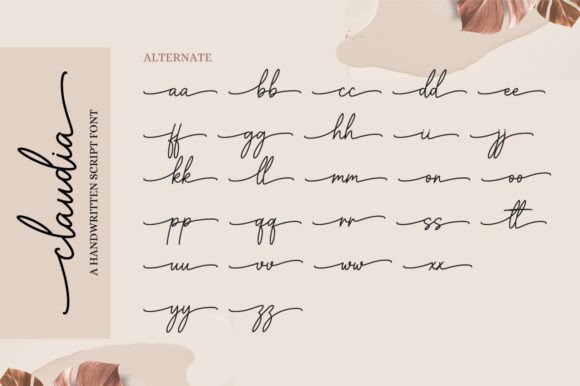 claudia
A HANDWRITTEN SCRIPT FONT
ALTERNATE
aa bb cc dd ee
ff gg hh ii jj
kk ll mm nn oo
pp qq rr ss tt
uu vv ww xx
yy zz